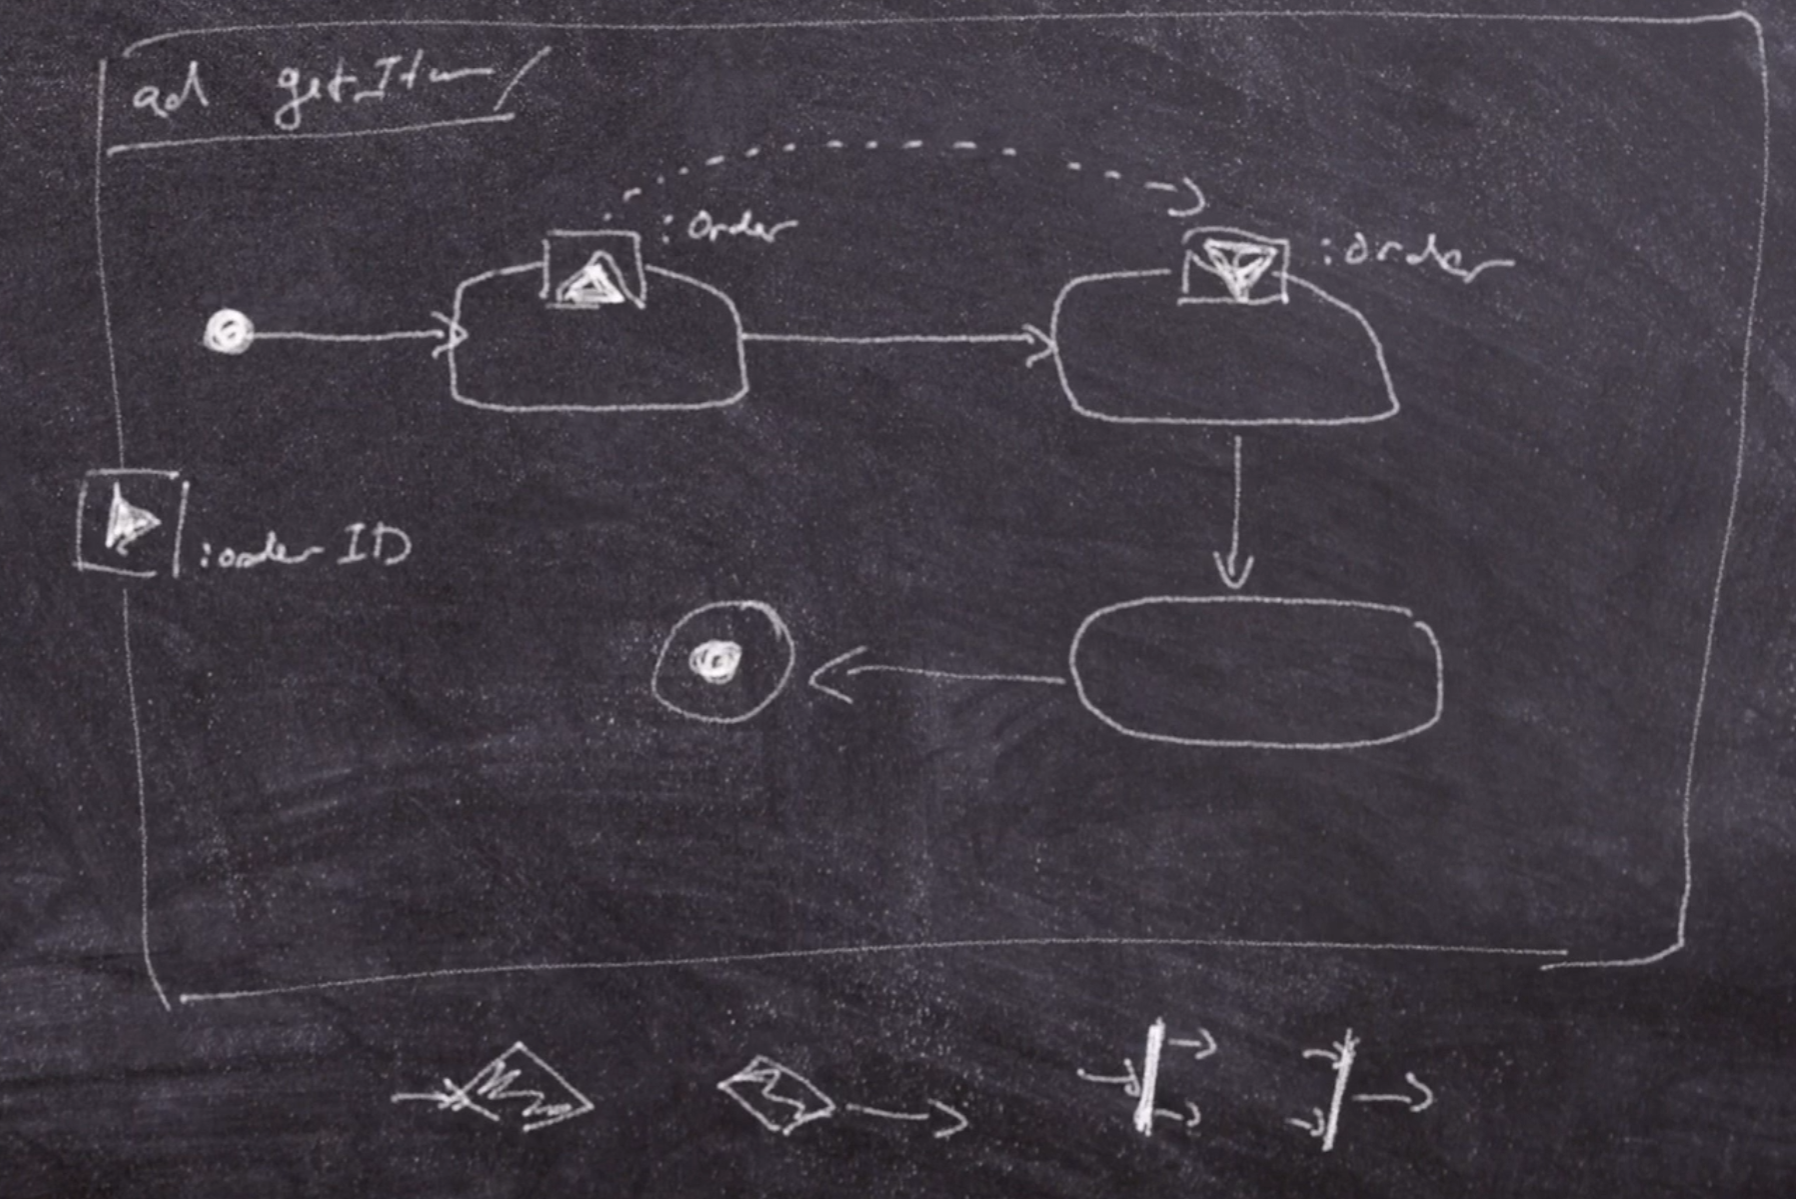 ad getItem
: Order
: Order
: order ID